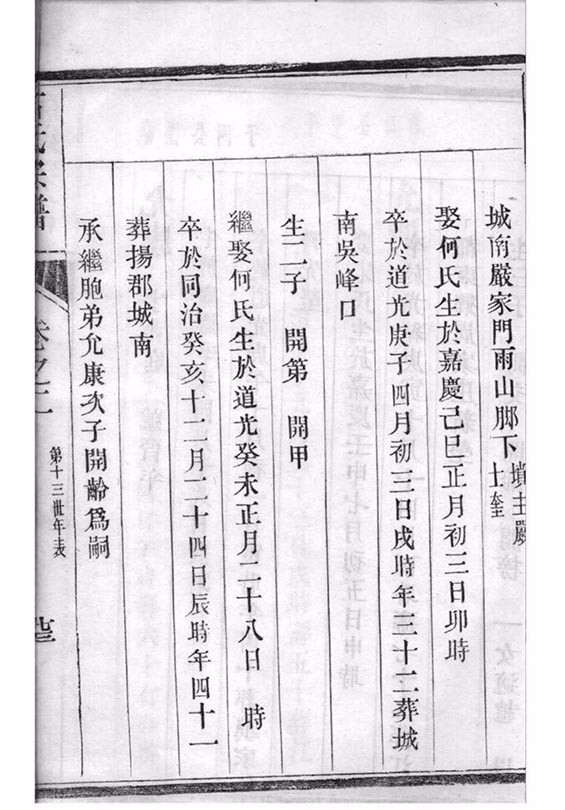 城南嚴家門雨山脚下 墳主嚴士奎
娶何氏生於嘉慶己巳正月初三日卯時
卒於道光庚子四月初三日戌時年三十二葬城
南吳峰口
生二子 開第 開甲
繼娶何氏生於道光癸未正月二十八日 時
卒於同治癸亥十二月二十四日辰時年四十一
葬揚郡城南
承繼胞弟允康次子開齡爲嗣
氏宗譜
卷之二
第十三世年表